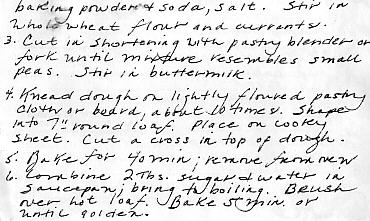 baking powder & soda, salt. Stir in
whole wheat flour and currants.
3. Cut in shortening with pastry blender or
fork until mixture resembles small
peas. Stir in buttermilk.
4. Knead dough on lightly floured pastry
cloth or board, about 10 times. Shape
into 7" round loaf. Place on cooky
sheet. Cut a cross in top of dough.
5. Bake for 40 min; remove from oven
6. Combine 2 Tbs. sugar & water in
saucepan; bring to boiling. Brush
over hot loaf. Bake 5 min. or
until golden.